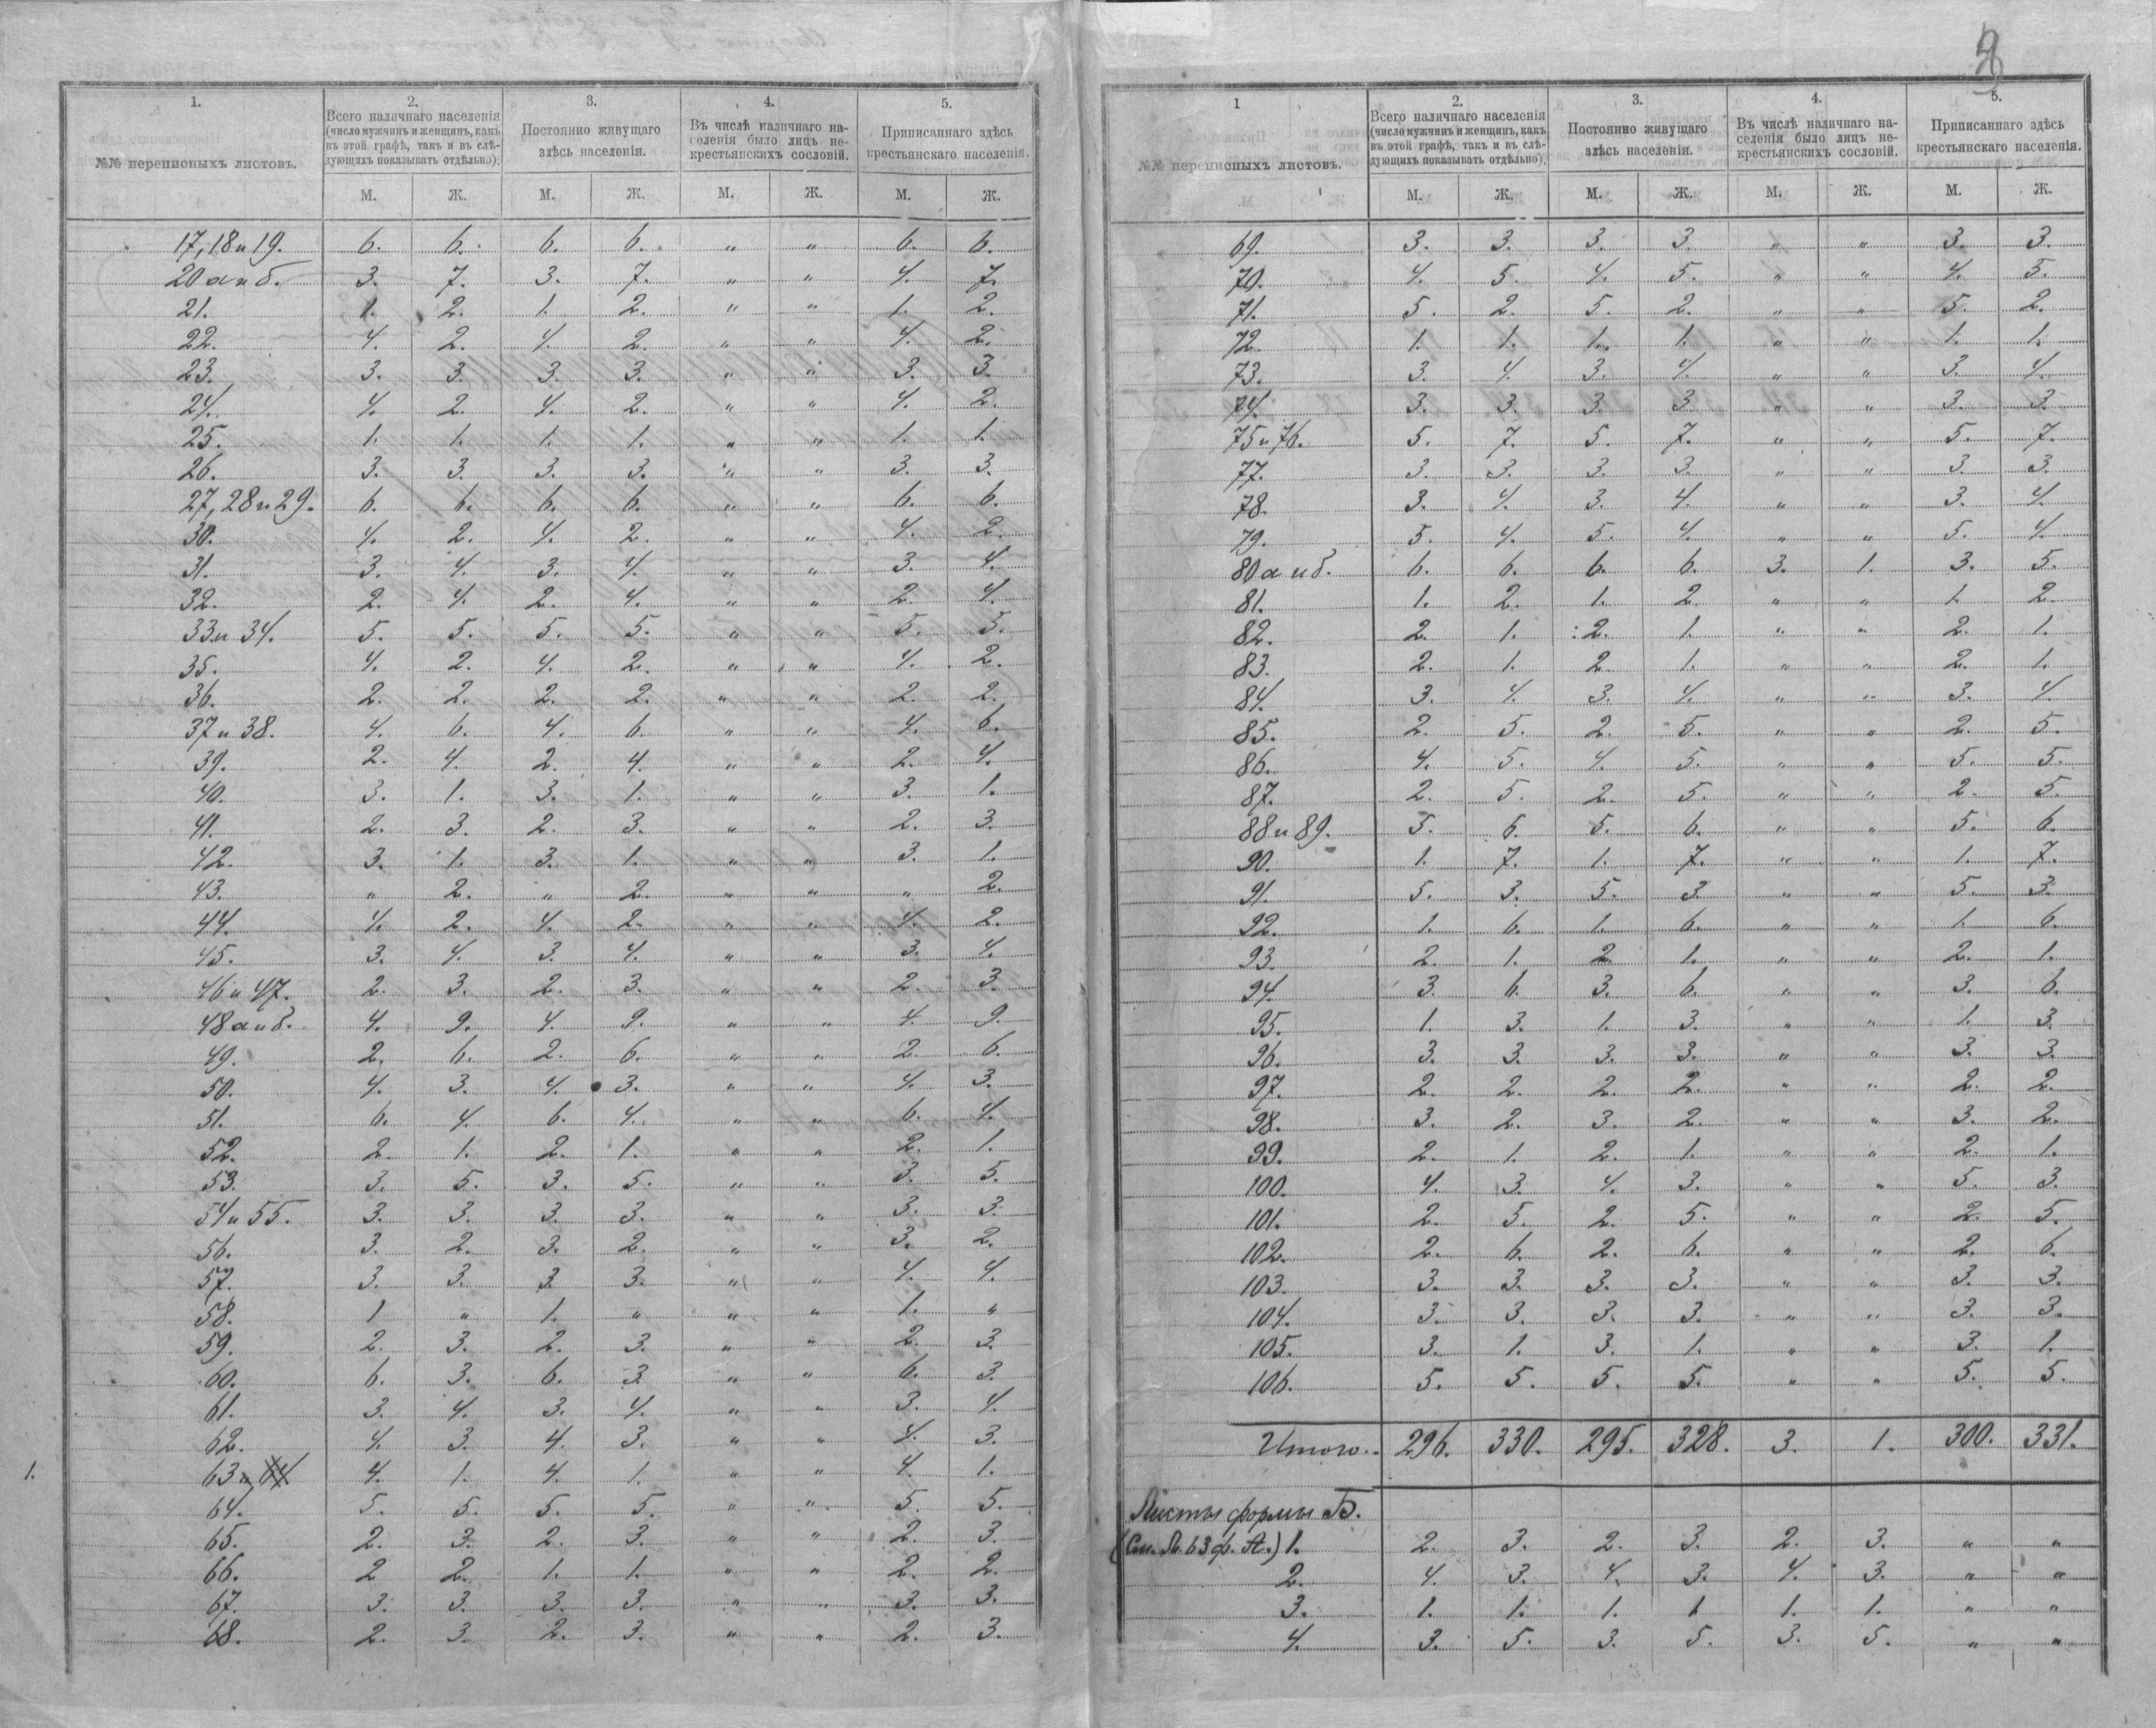 1. 2. 3. 4. 5.
№№ переписныхъ листовъ. Всего наличнаго населенія (число мужчинъ и женщинъ, какъ въ этой графѣ, такъ и въ слѣдующихъ показывать отдѣльно). Постоянно живущаго здѣсь населенія. Въ числѣ наличнаго населенія было лицъ некрестьянскихъ сословій. Приписаннаго здѣсь крестьянскаго населенія.
М. Ж. М. Ж. М. Ж. М. Ж.
17, 18 и 19. 6. 6. 6. 6. " " 6. 6.
20 а и б. 3. 7. 3. 7. " " 4. 7.
21. 1. 2. 1. 2. " " 1. 2.
22. 4. 2. 4. 2. " " 4. 2.
23. 3. 3. 3. 3. " " 3. 3.
24. 4. 2. 4. 2. " " 4. 2.
25. 1. 1. 1. 1. " " 1. 1.
26. 3. 3. 3. 3. " " 3. 3.
27, 28 и 29. 6. 6. 6. 6. " " 6. 6.
30. 4. 2. 4. 2. " " 4. 2.
31. 3. 4. 3. 4. " " 3. 4.
32. 2. 4. 2. 4. " " 2. 4.
33 и 34. 5. 5. 5. 5. " " 5. 5.
35. 4. 2. 4. 2. " " 4. 2.
36. 2. 2. 2. 2. " " 2. 2.
37 и 38. 4. 6. 4. 6. " " 4. 6.
39. 2. 4. 2. 4. " " 2. 4.
40. 3. 1. 3. 1. " " 3. 1.
41. 2. 3. 2. 3. " " 2. 3.
42. 3. 1. 3. 1. " " 3. 1.
43. " 2. " 2. " " " 2.
44. 4. 2. 4. 2. " " 4. 2.
45. 3. 4. 3. 4. " " 3. 4.
46 и 47. 2. 3. 2. 3. " " 2. 3.
48 а и б. 4. 9. 4. 9. " " 4. 9.
49. 2. 6. 2. 6. " " 2. 6.
50. 4. 3. 4. 3. " " 4. 3.
51. 6. 4. 6. 4. " " 6. 4.
52. 2. 1. 2. 1. " " 2. 1.
53. 3. 5. 3. 5. " " 3. 5.
54 и 55. 3. 3. 3. 3. " " 3. 3.
56. 3. 2. 3. 2. " " 3. 2.
57. 3. 3. 3. 3. " " 4. 4.
58. 1 " 1. " " " 1. "
59. 2. 3. 2. 3. " " 2. 3.
60. 6. 3. 6. 3 " " 6. 3.
61. 3. 4. 3. 4. " " 3. 4.
62. 4. 3. 4. 3. " " 4. 3.
1. 63 и 64 4. 1. 4. 1. " " 4. 1.
64. 5. 5. 5. 5. " " 5. 5.
65. 2. 3. 2. 3. " " 2. 3.
66. 2 2. 1. 1. " " 2. 2.
67. 3. 3. 3. 3. " " 3. 3.
68. 2. 3. 2. 3. " " 2. 3.
1 2. 3. 4. 5.
№№ переписныхъ листовъ. Всего наличнаго населенія (число мужчинъ и женщинъ, какъ въ этой графѣ, такъ и въ слѣдующихъ показывать отдѣльно). Постоянно живущаго здѣсь населенія. Въ числѣ наличнаго населенія было лицъ некрестьянскихъ сословій. Приписаннаго здѣсь крестьянскаго населенія.
М. Ж. М. Ж. М. Ж. М. Ж.
69. 3. 3. 3. 3. " " 3. 3.
70. 4. 5. 4. 5. " " 4. 5.
71. 5. 2. 5. 2. " " 5. 2.
72. 1. 1. 1. 1. " " 1. 1.
73. 3. 4. 3. 4. " " 3. 4.
74. 3. 3. 3. 3. " " 3. 3.
75 и 76. 5. 7. 5. 7. " " 5. 7.
77. 3. 3. 3. 3. " " 3. 3.
78. 3. 4. 3. 4. " " 3. 4.
79. 5. 4. 5. 4. " " 5. 4.
80 а и б. 6. 6. 6. 6. 3. 1. 3. 5.
81. 1. 2. 1. 2. " " 1. 2.
82. 2. 1. 2. 1. " " 2. 1.
83. 2. 1. 2. 1. " " 2. 1.
84. 3. 4. 3. 4. " " 3. 4.
85. 2. 5. 2. 5. " " 2. 5.
86. 4. 5. 4. 5. " " 5. 5.
87. 2. 5. 2. 5. " " 2. 5.
88 и 89. 5. 6. 5. 6. " " 5. 6.
90. 1. 7. 1. 7. " " 1. 7.
91. 5. 3. 5. 3. " " 5. 3.
92. 1. 6. 1. 6. " " 1. 6.
93. 2. 1. 2. 1. " " 2. 1.
94. 3. 6. 3. 6. " " 3. 6.
95. 1. 3. 1. 3. " " 1. 3.
96. 3. 3. 3. 3. " " 3. 3.
97. 2. 2. 2. 2. " " 2. 2.
98. 3. 2. 3. 2. " " 3. 2.
99. 2. 1. 2. 1. " " 2. 1.
100. 4. 3. 4. 3. " " 5. 3.
101. 2. 5. 2. 5. " " 2. 5.
102. 2. 6. 2. 6. " " 2. 6.
103. 3. 3. 3. 3. " " 3. 3.
104. 3. 3. 3. 3. " " 3. 3.
105. 3. 1. 3. 1. " " 3. 1.
106. 5. 5. 5. 5. " " 5. 5.
Итого. 296. 330. 295. 328. 3. 1. 300. 331.
Листы формы Б.
(См. Л. 63 ф. А.) 1. 2. 3. 2. 3. 2. 3. " "
2. 4. 3. 4. 3. 4. 3. " "
3. 1. 1. 1. 1 1. 1. " "
4. 3. 5. 3. 5. 3. 5. " "